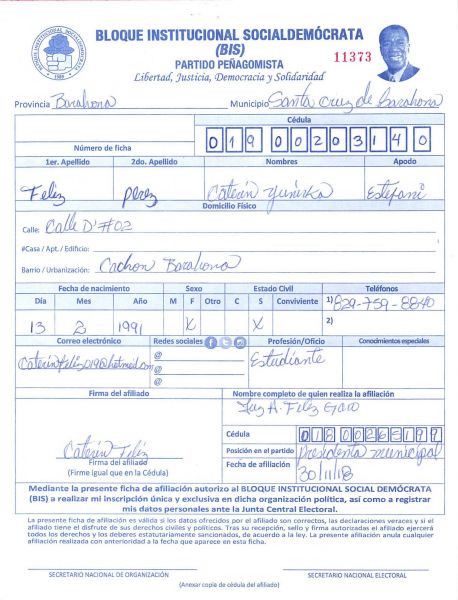 BLOQUE INSTITUCIONAL SOCIALDEMÓCRATA
(BIS)
PARTIDO PEÑAGOMISTA
11373
Libertad, Justicia, Democracia y Solidaridad
Provincia Barahona Municipio Santa Cruz de Barahona
Cédula
Número de ficha 01900203140
1er. Apellido 2do. Apellido Nombres Apodo
Feliz Perez Caterin Yuniska Estefani
Domicilio Físico
Calle: Calle D' #02
#Casa / Apt. / Edificio:
Barrio / Urbanización: Cachon Barahona
Fecha de nacimiento Sexo Estado Civil Teléfonos
Día Mes Año M F Otro C S Conviviente 1) 829-759-8840
13 2 1991 X X 2)
Correo electrónico Redes sociales Profesión/Oficio Conocimientos especiales
Caterinfeliz019@hotmail.com @ Estudiante
@
@
Firma del afiliado Nombre completo de quien realiza la afiliación
A. Feliz
Cédula
Caterin Feliz Posición en el partido Presidenta municipal
Firma del afiliado Fecha de afiliación 30/11/18
(Firme igual que en la Cédula)
Mediante la presente ficha de afiliación autorizo al BLOQUE INSTITUCIONAL SOCIAL DEMÓCRATA
(BIS) a realizar mi inscripción única y exclusiva en dicha organización política, así como a registrar
mis datos personales ante la Junta Central Electoral.
La presente ficha de afiliación es válida si los datos ofrecidos por el afiliado son correctos, las declaraciones veraces y si el
afiliado tiene el disfrute de sus derechos civiles y políticos. Tras su recepción, sello y firma autorizados el afiliado ejercerá
todos los derechos y los deberes estatutariamente sancionados, de acuerdo a la ley. La presente afiliación anula cualquier
afiliación realizada con anterioridad a la fecha que aparece en esta ficha.
SECRETARIO NACIONAL DE ORGANIZACIÓN SECRETARIO NACIONAL ELECTORAL
(Anexar copia de cédula del afiliado)